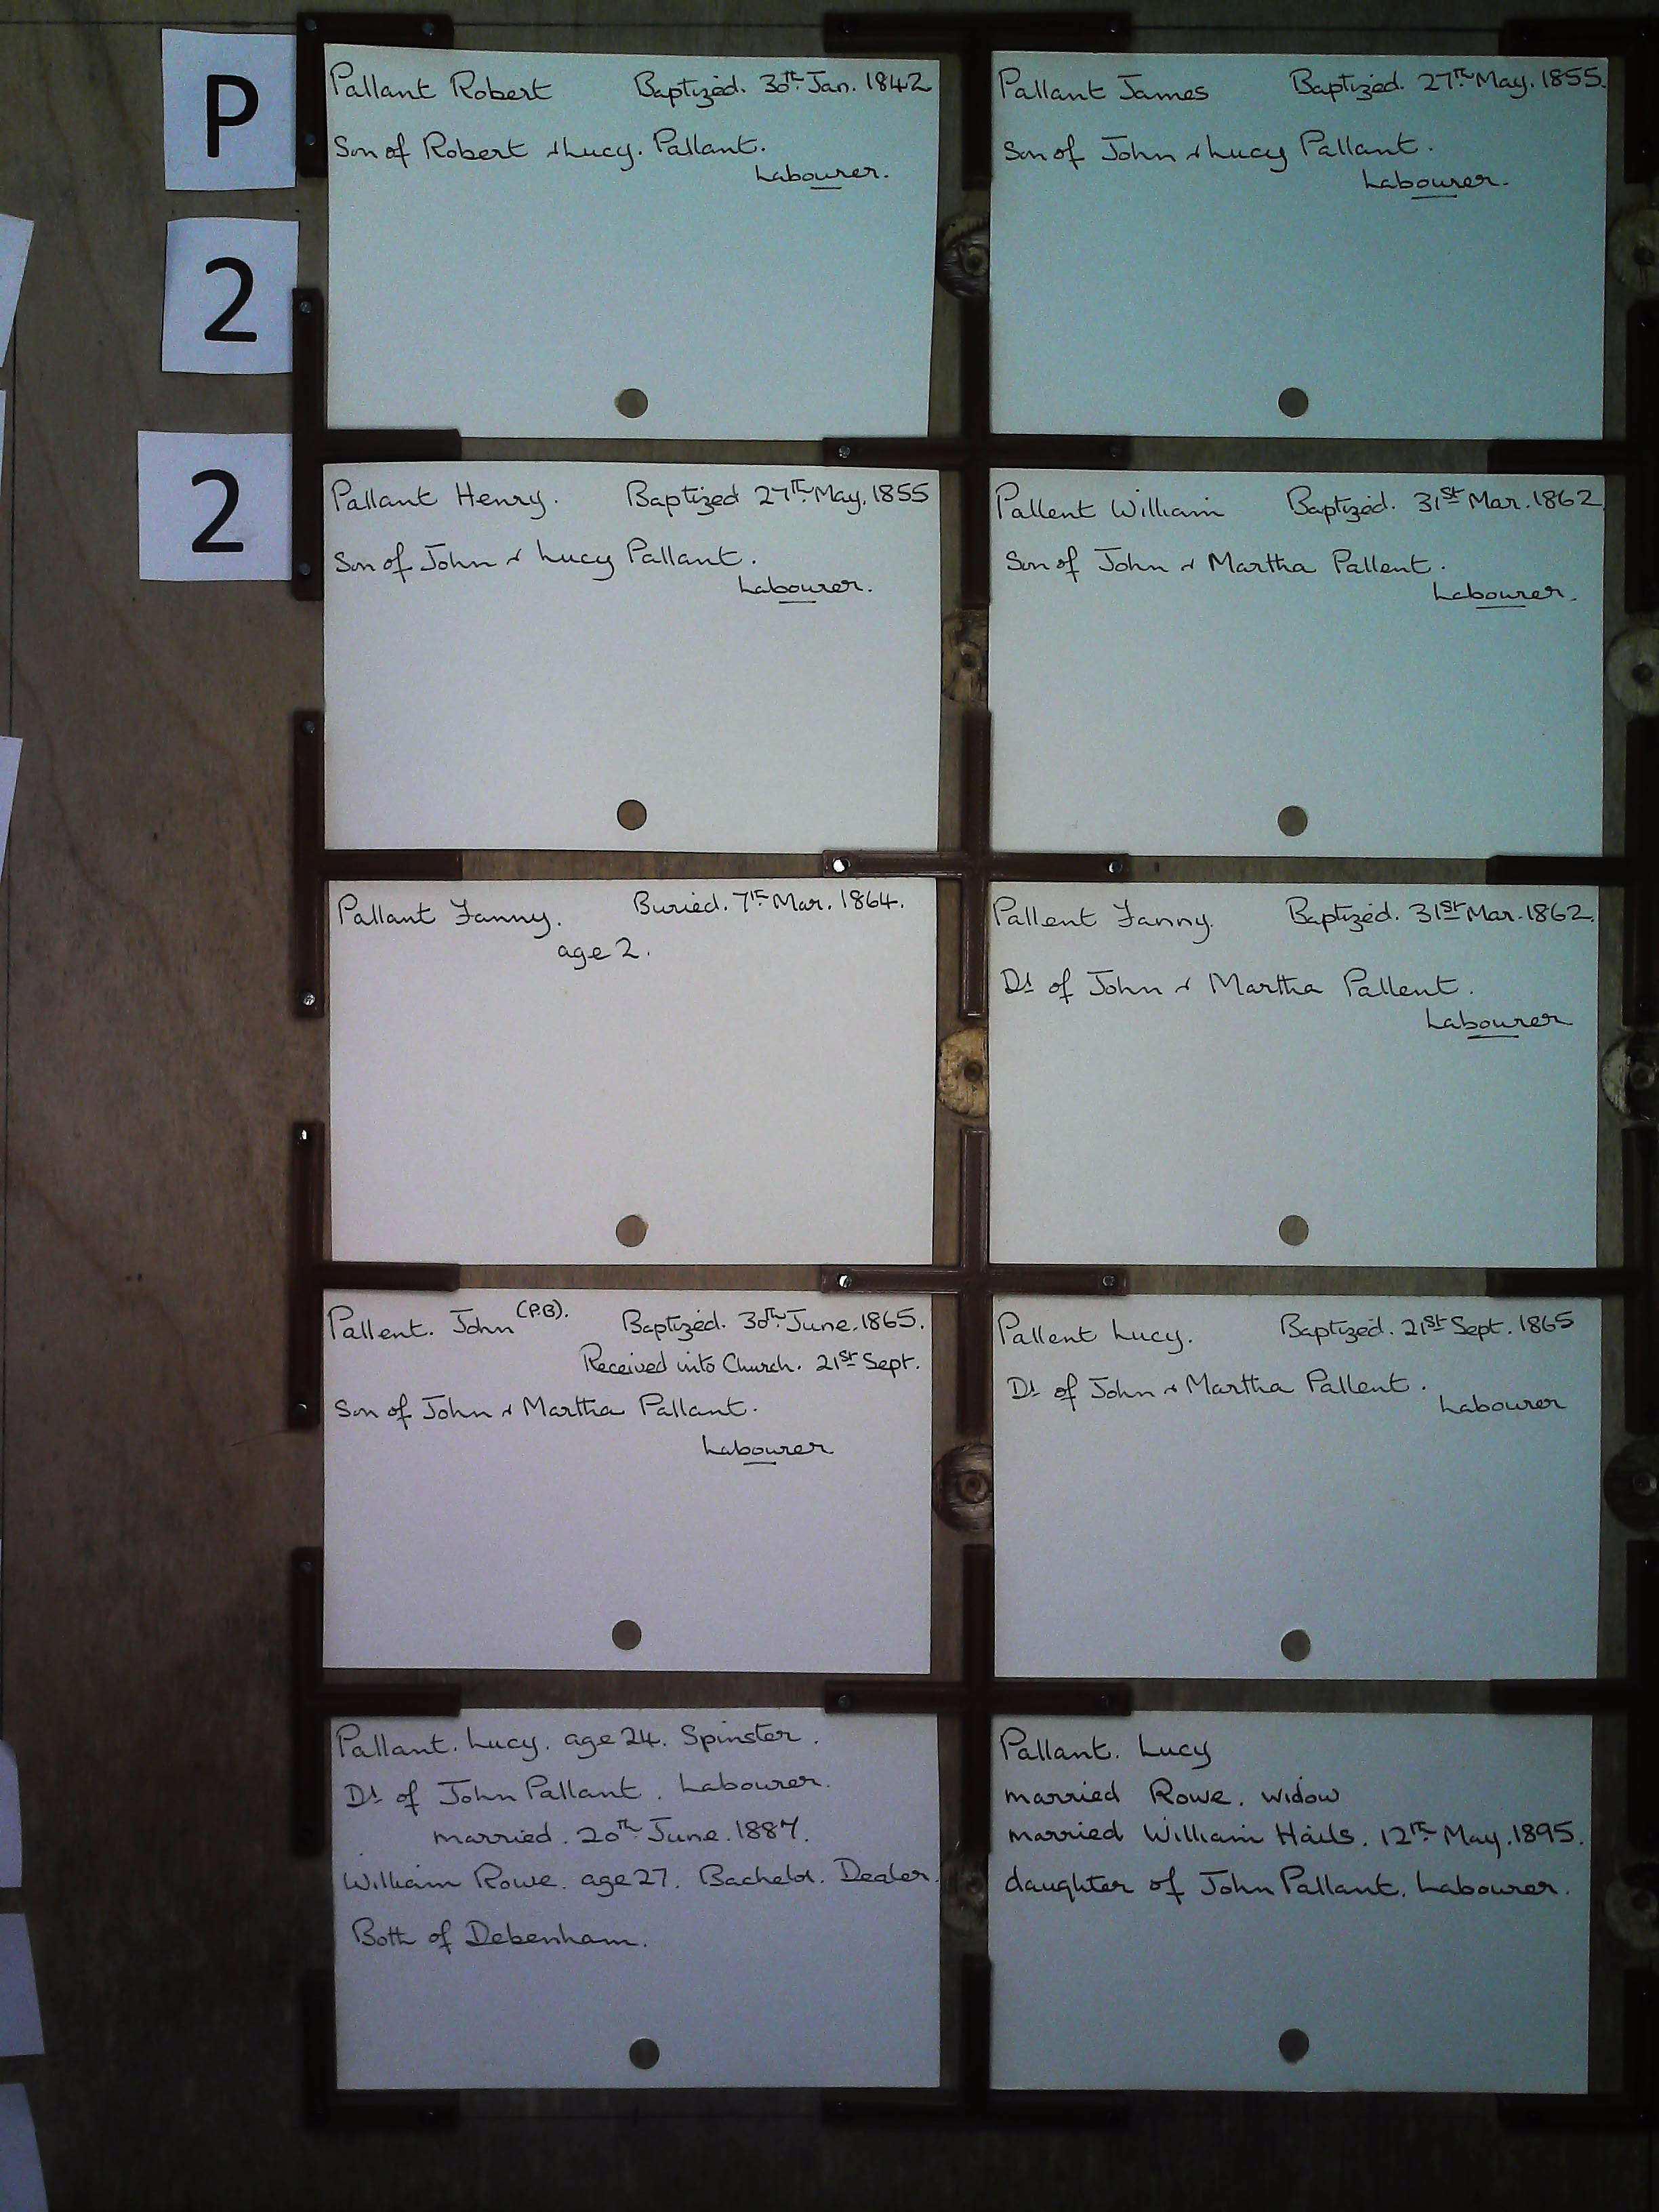 P
2
2
Pallant Robert Baptized. 30th Jan. 1842
Son of Robert & Lucy. Pallant.
Labourer.
Pallant James Baptized. 27th May. 1855.
Son of John & Lucy Pallant.
Labourer.
Pallant Henry. Baptized 27th May. 1855
Son of John & Lucy Pallant.
Labourer.
Pallent William Baptized. 31st Mar. 1862
Son of John & Martha Pallent.
Labourer.
Pallant Fanny. Buried. 7th Mar. 1864.
age 2.
Pallent Fanny. Baptized. 31st Mar. 1862.
Dt of John & Martha Pallent.
Labourer
Pallent. John (P.B). Baptized. 30th June. 1865.
Received into Church. 21st Sept.
Son of John & Martha Pallant.
Labourer
Pallent Lucy. Baptized. 21st Sept. 1865
Dt of John & Martha Pallent.
Labourer
Pallant. Lucy. age 24. Spinster.
Dt of John Pallant. Labourer.
married. 20th June. 1887.
William Rowe. age 27. Bachelor. Dealer.
Both of Debenham.
Pallant. Lucy
married Rowe. widow
married William Hails. 12th May. 1895.
daughter of John Pallant. Labourer.